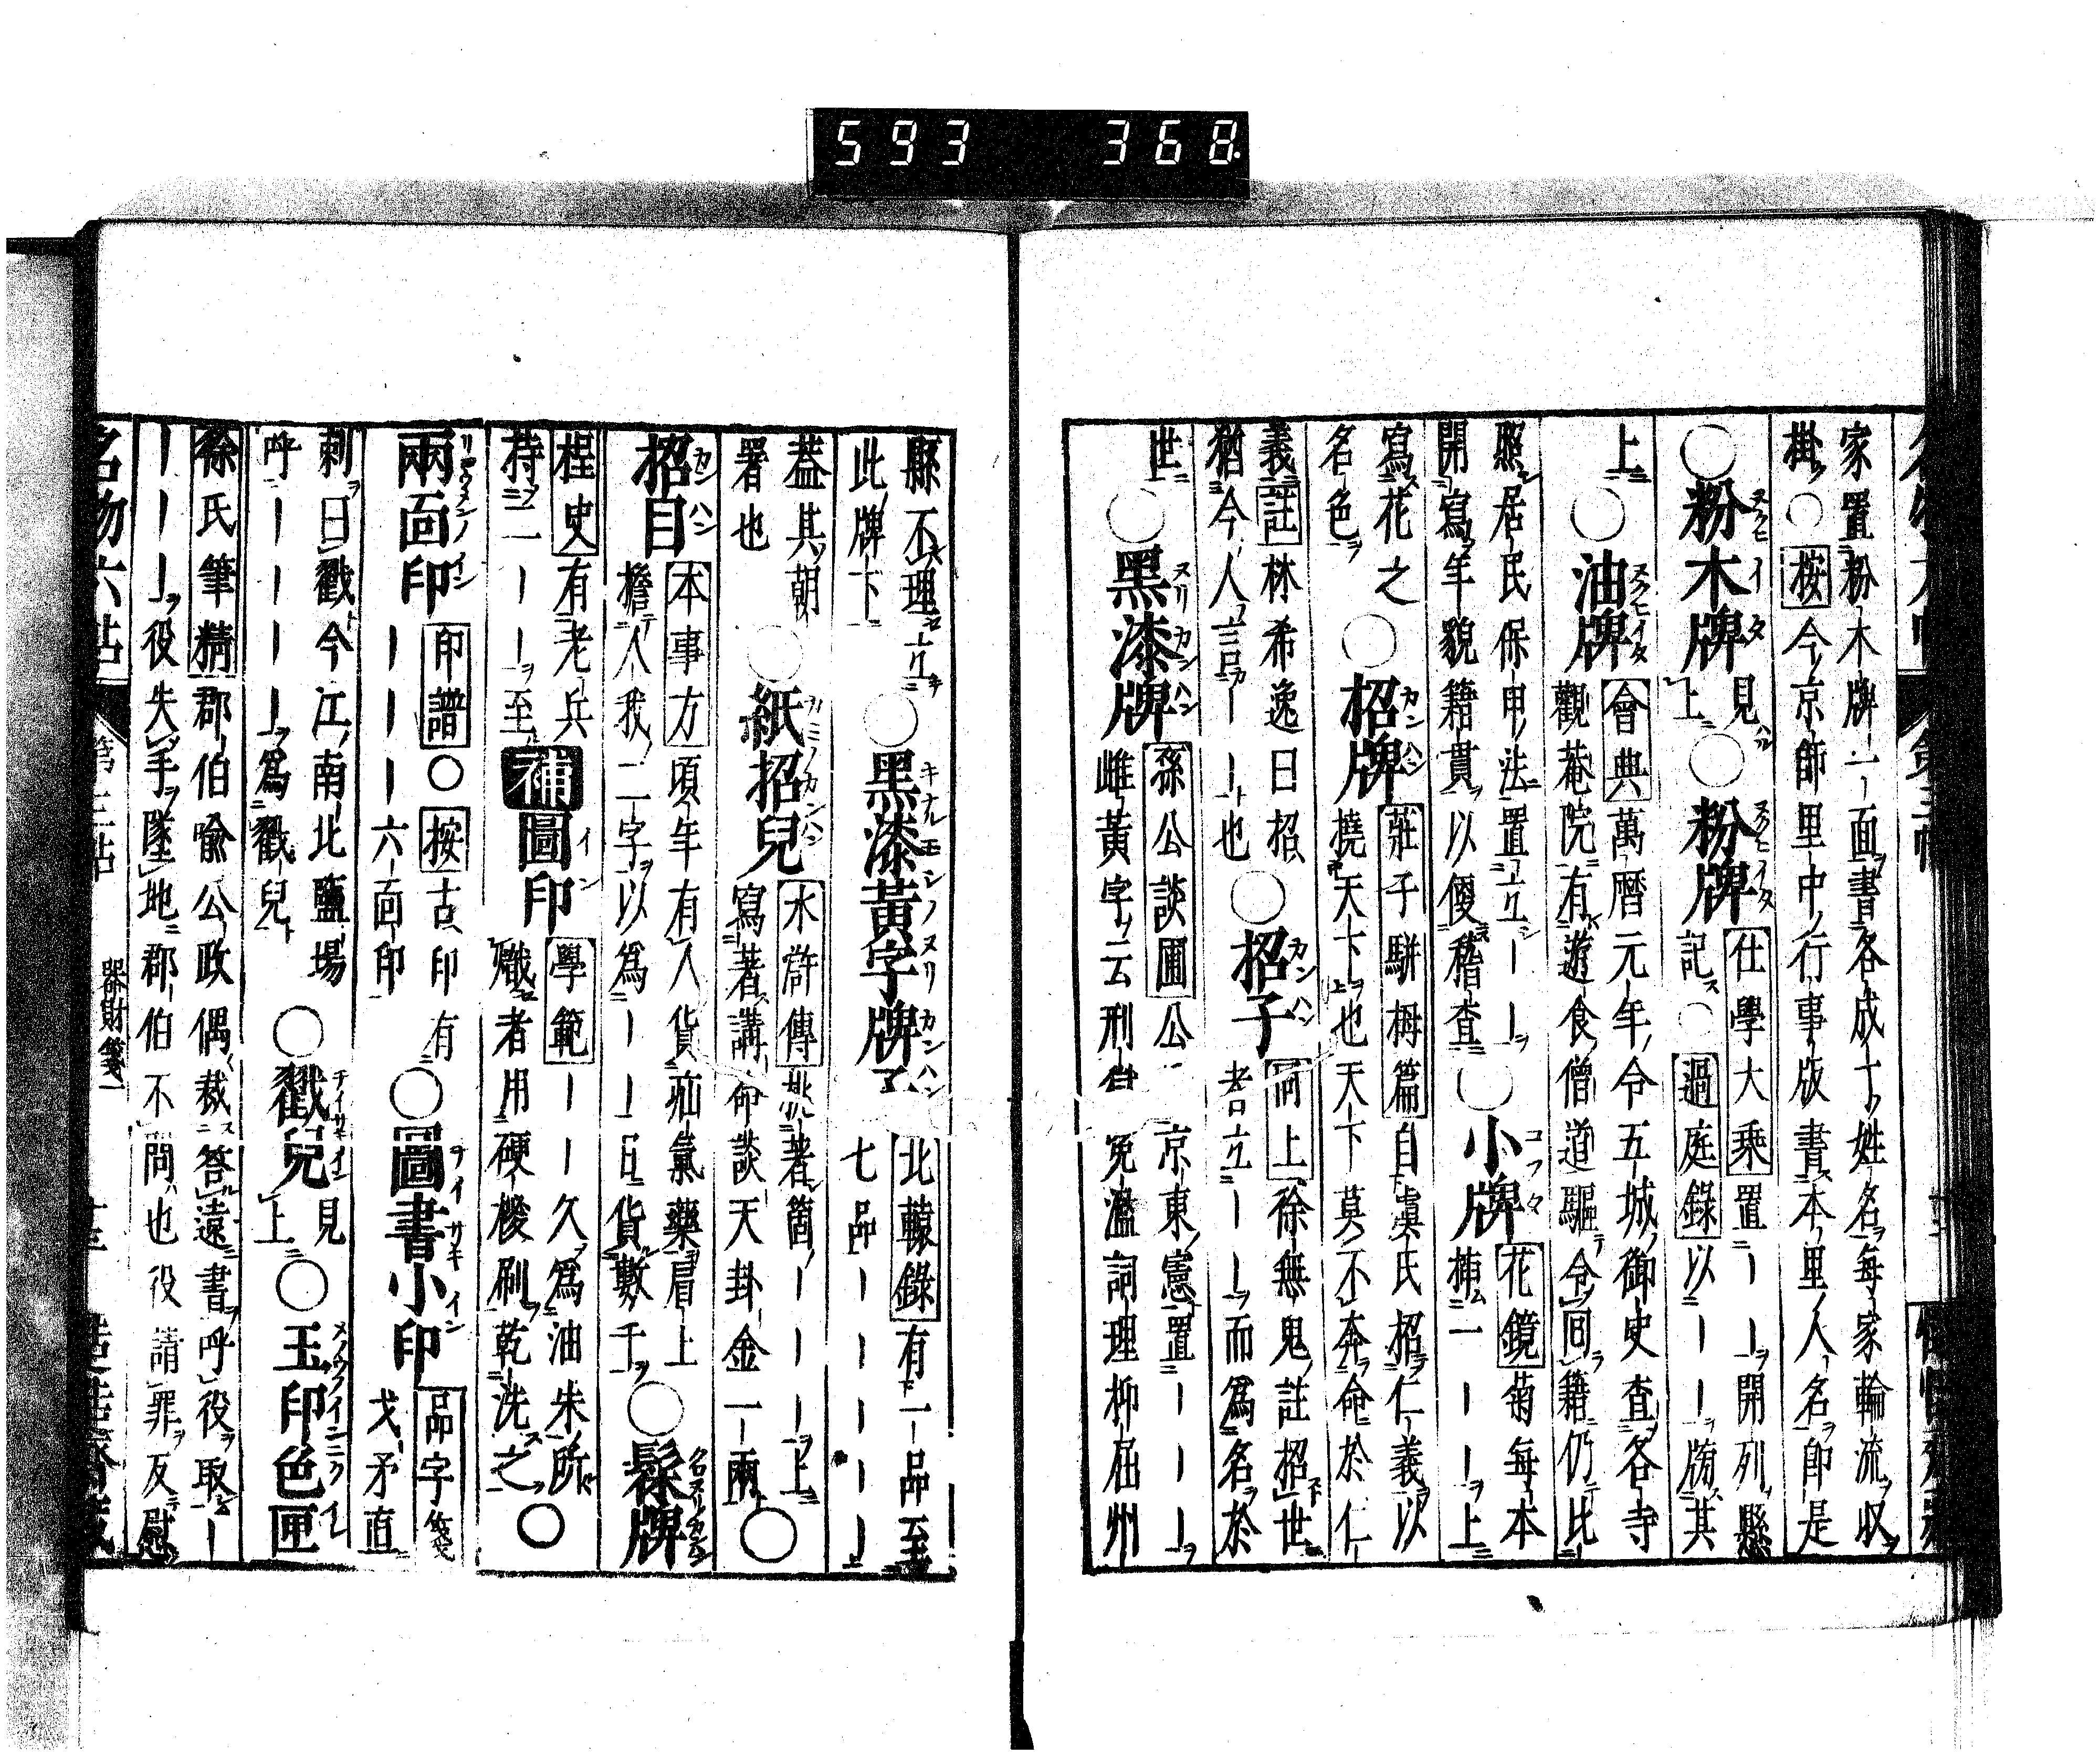 家置粉木牌一面書各成丁姓名每家輪流収
掛○按今京師里中行事版書本里人名即是
○粉木牌見上○粉牌仕學大乘置｜｜開列縣
記○過庭錄以｜｜牓其
上○油牌會典萬曆元年令五城御史查各寺
觀菴院有遊食僧道驅令回籍仍比
照居民保甲法置立｜｜
開寫年貌籍貫以便稽查○小牌花鏡菊每本
揷一｜｜上
寫花之
名色○招牌莊子駢拇篇自虞氏招仁義以
撓天下也天下莫不奔命於仁
義註林希逸曰招
猶今人言｜｜也○招子同上徐無鬼註招世
者立｜｜而為名於
世○黑漆牌孫公談圃公京東憲置｜｜｜
雌黃字云刑冤濫詞理抑屈州
縣不理立
此牌下○黑漆黃字牌子北轅錄有一品至
七品｜｜｜｜｜
蓋其朝
署也○紙招兒水滸傳挑著箇｜｜｜上
寫著講命談天卦金一兩○
招目本事方頃年有人貨疝氣藥肩上
擔人我二字以為｜｜日貨數千○髹牌
桯史有老兵
持二｜｜至補圖印學範｜｜久為油朱所
熾者用硬椶刷乾洗之○
兩面印印譜○按古印有
｜｜｜六面印○圖書小印品字箋
戈矛直
刺曰戳今江南北鹽場
呼｜｜｜｜為戳兒○戳兒見上○玉印色匣
徐氏筆精郡伯喻公政偶裁答遠書呼役取｜
｜｜｜役失手墜地郡伯不問也役請罪反慰
名物六帖 第三帖 器財箋一 十三
593 368